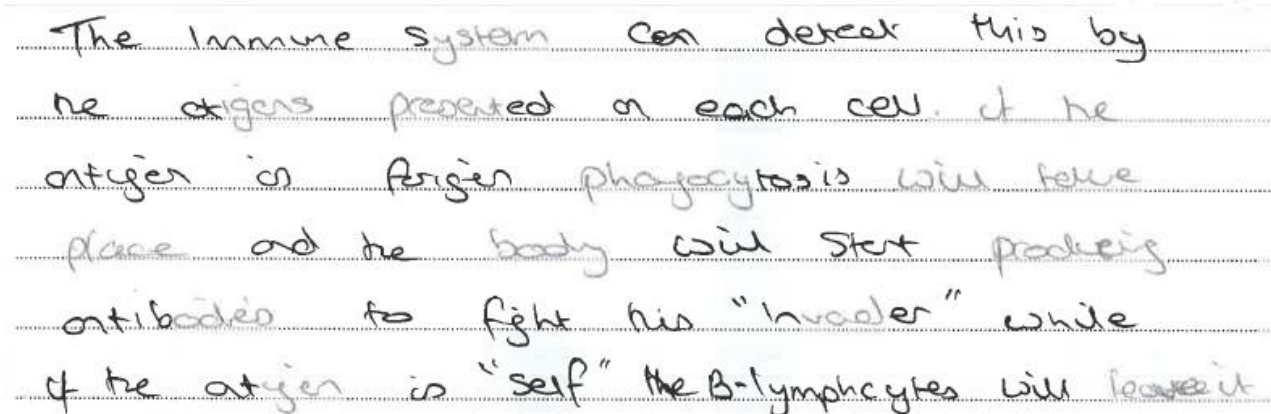 The Immune system can detect this by
the antigens presented on each cell. if the
antigen is forigen phagocytosis will take
place and the body will start producing
antibodies to fight this "Invader" while
if the antigen is "self" the B-lymphcytes will leave it